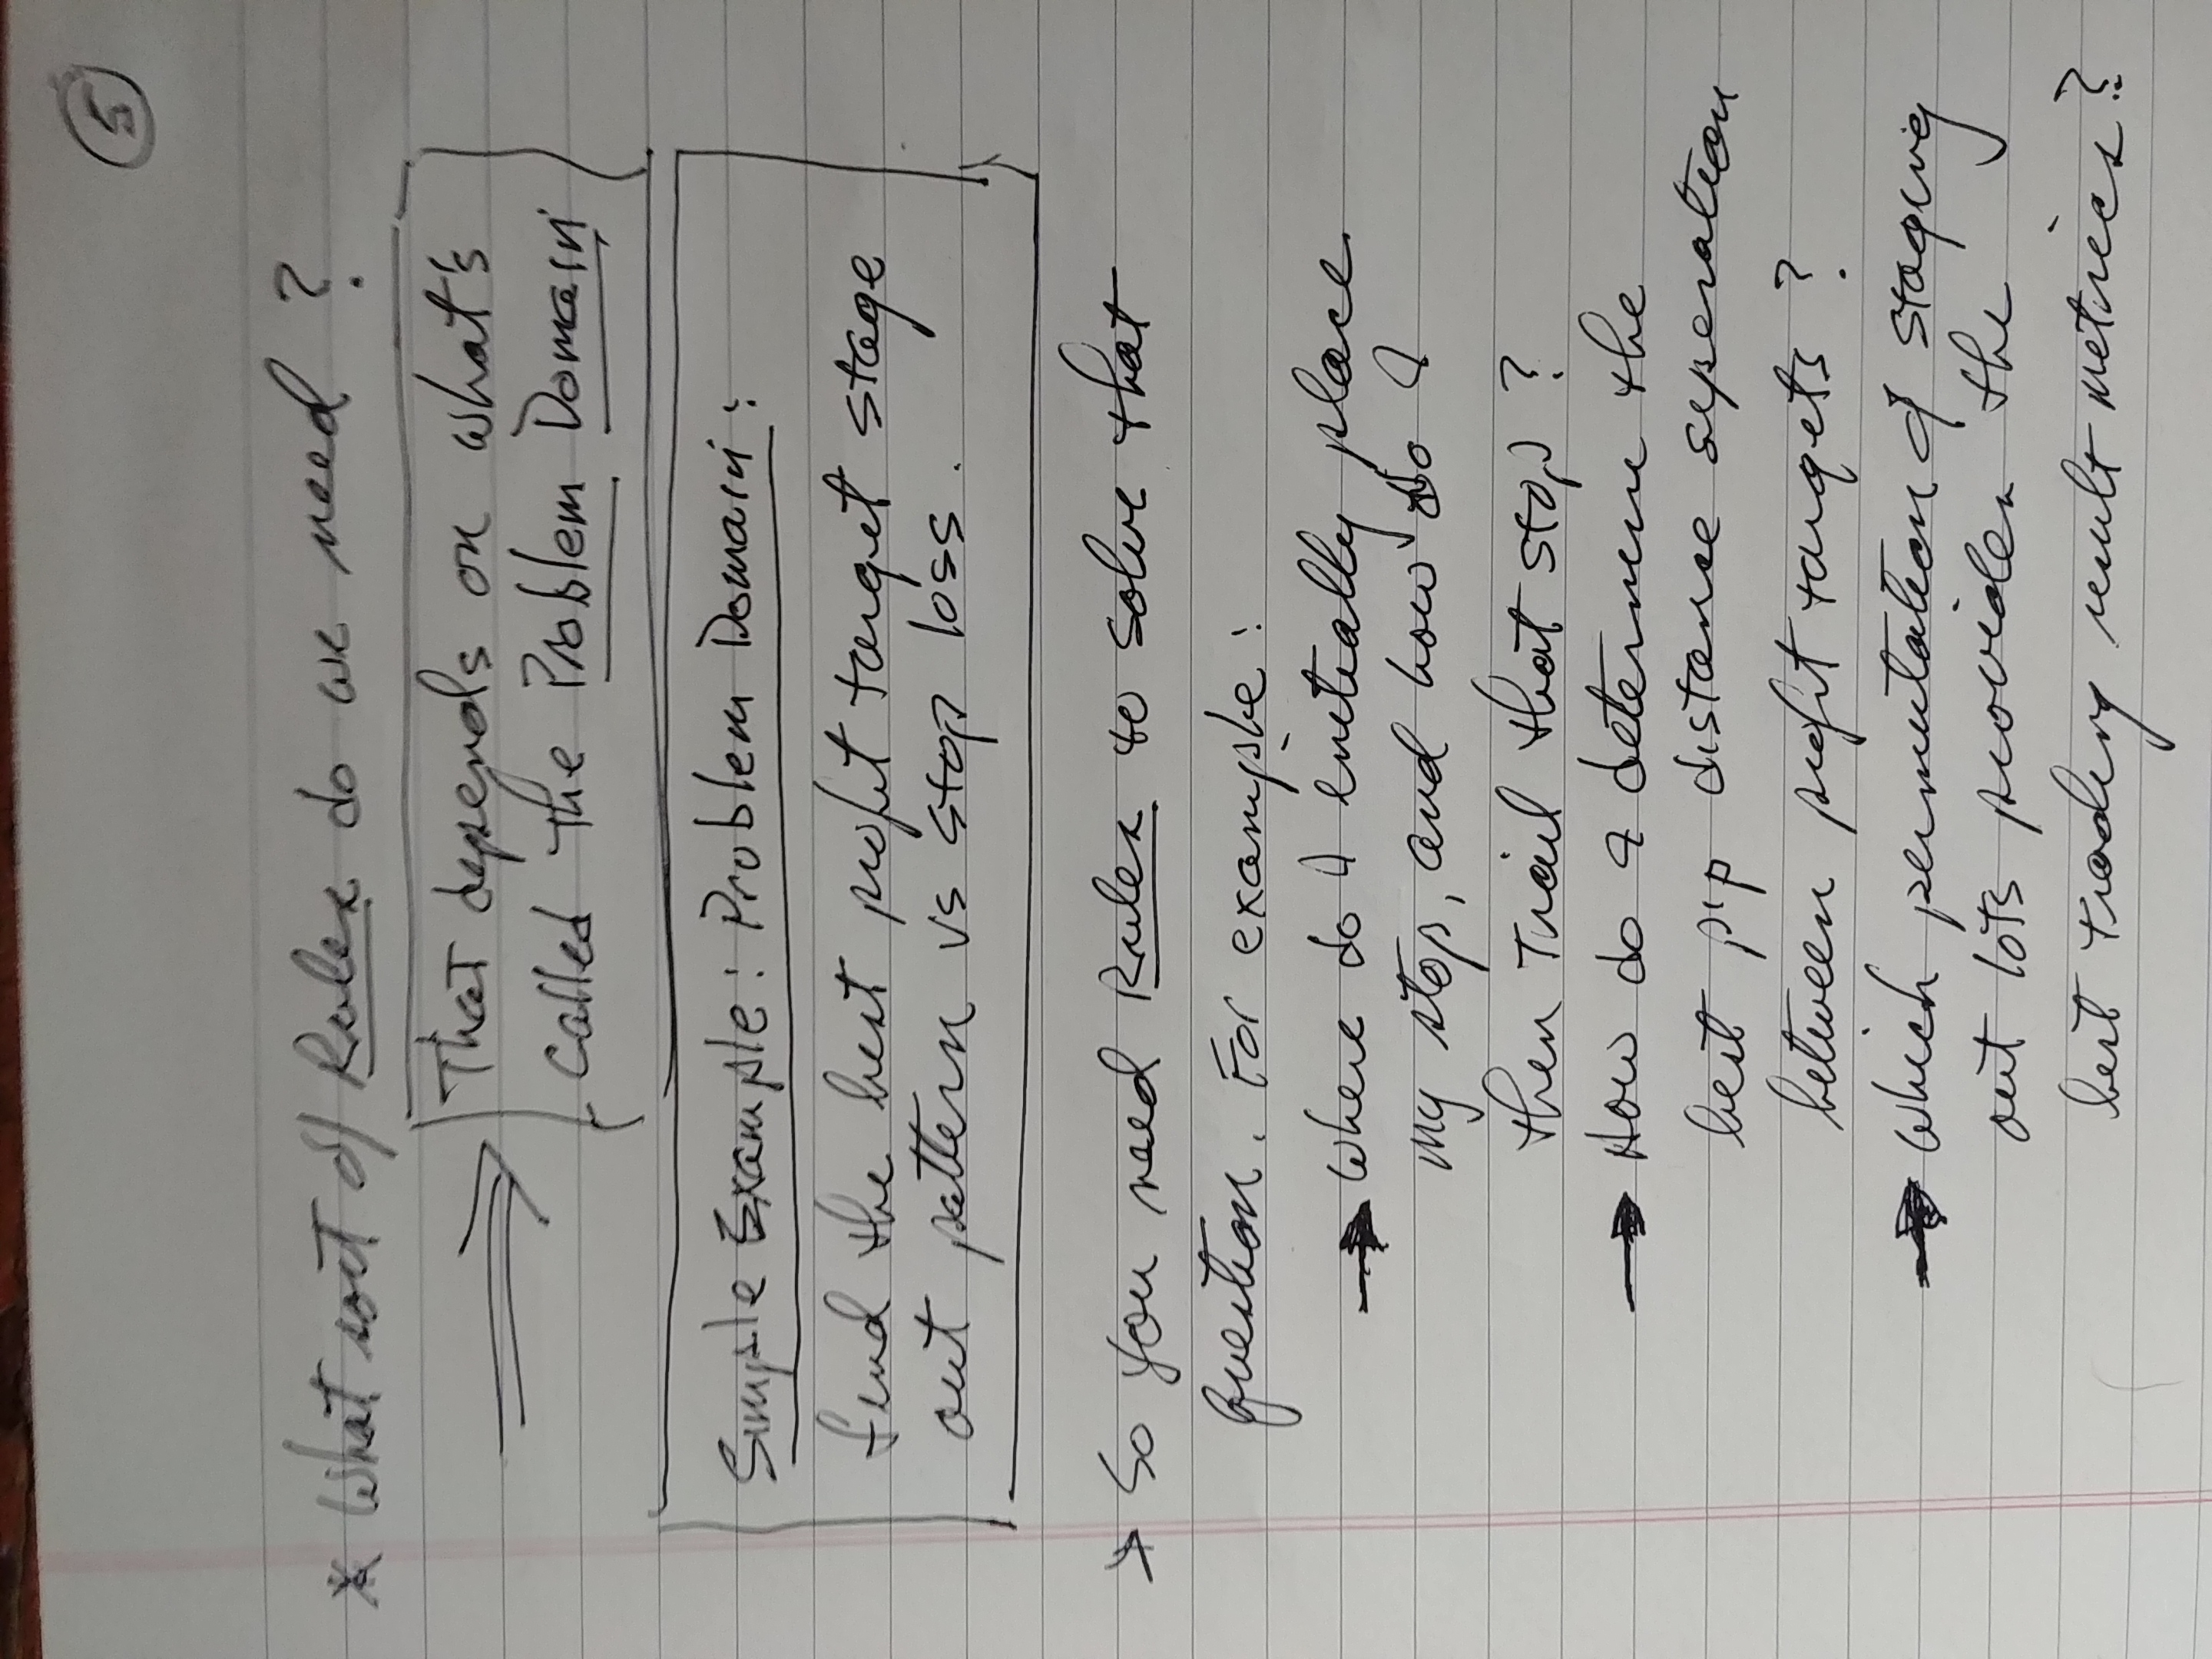 5
* What sort of Rules do we need ?
That depends on what's
called the Problem Domain
Simple Example: Problem Domain:
find the best profit target stage
out pattern vs stop loss.
> So you need Rules to solve that
question. For example:
→ Where do I initially place
my stop, and how do I
then Trail that stop ?
→ How do I determine the
best pip distance seperation
between profit targets ?
→ Which permutation of staging
out lots provides the
best trading result metrics?